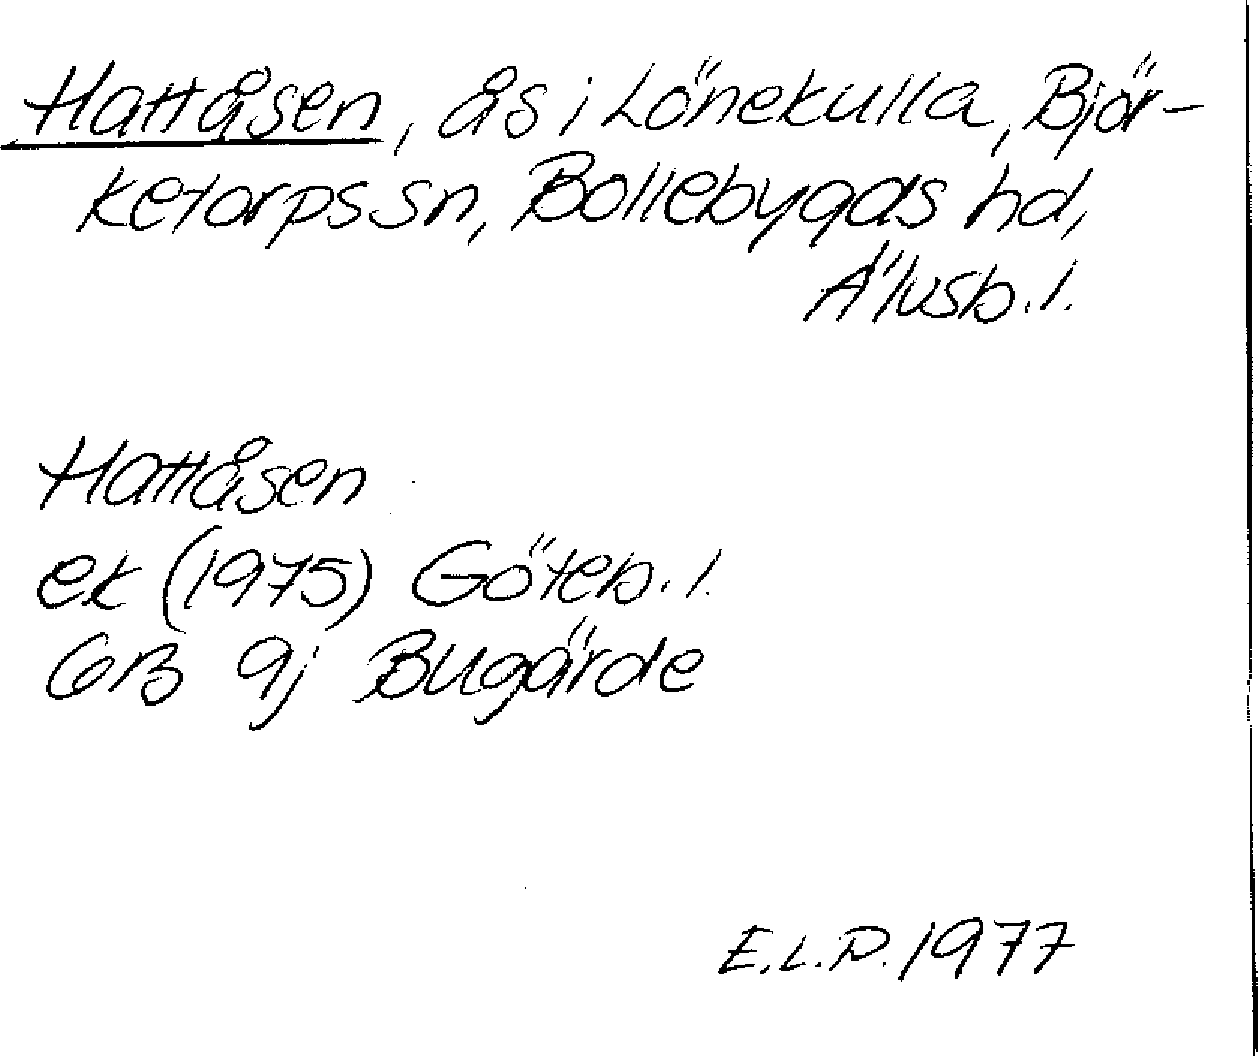 Hattåsen, ås i Lönekulla, Björ-
ketorps sn, Bollebygds hd,
Älvsb. l.
Hattåsen
ek (1975) Göteb. l.
GB 9j Bugärde
E.L.P. 1977